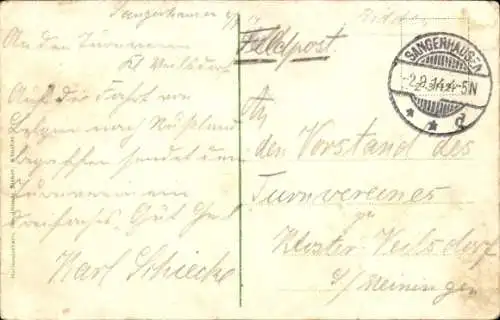 Sangerhausen
An den Turnverein
Kl Veilsdorf
Auf der Fahrt von
Belgien nach Rußland
begriffen sendet dem
Turnverein ein
dreifaches Gut Heil
Karl Schieck
Feldpost.
SANGERHAUSEN
-2.9.14.4-5N
* * d
An
den Vorstand des
Turnvereines
zu
Kloster-Veilsdorf
S/Meiningen